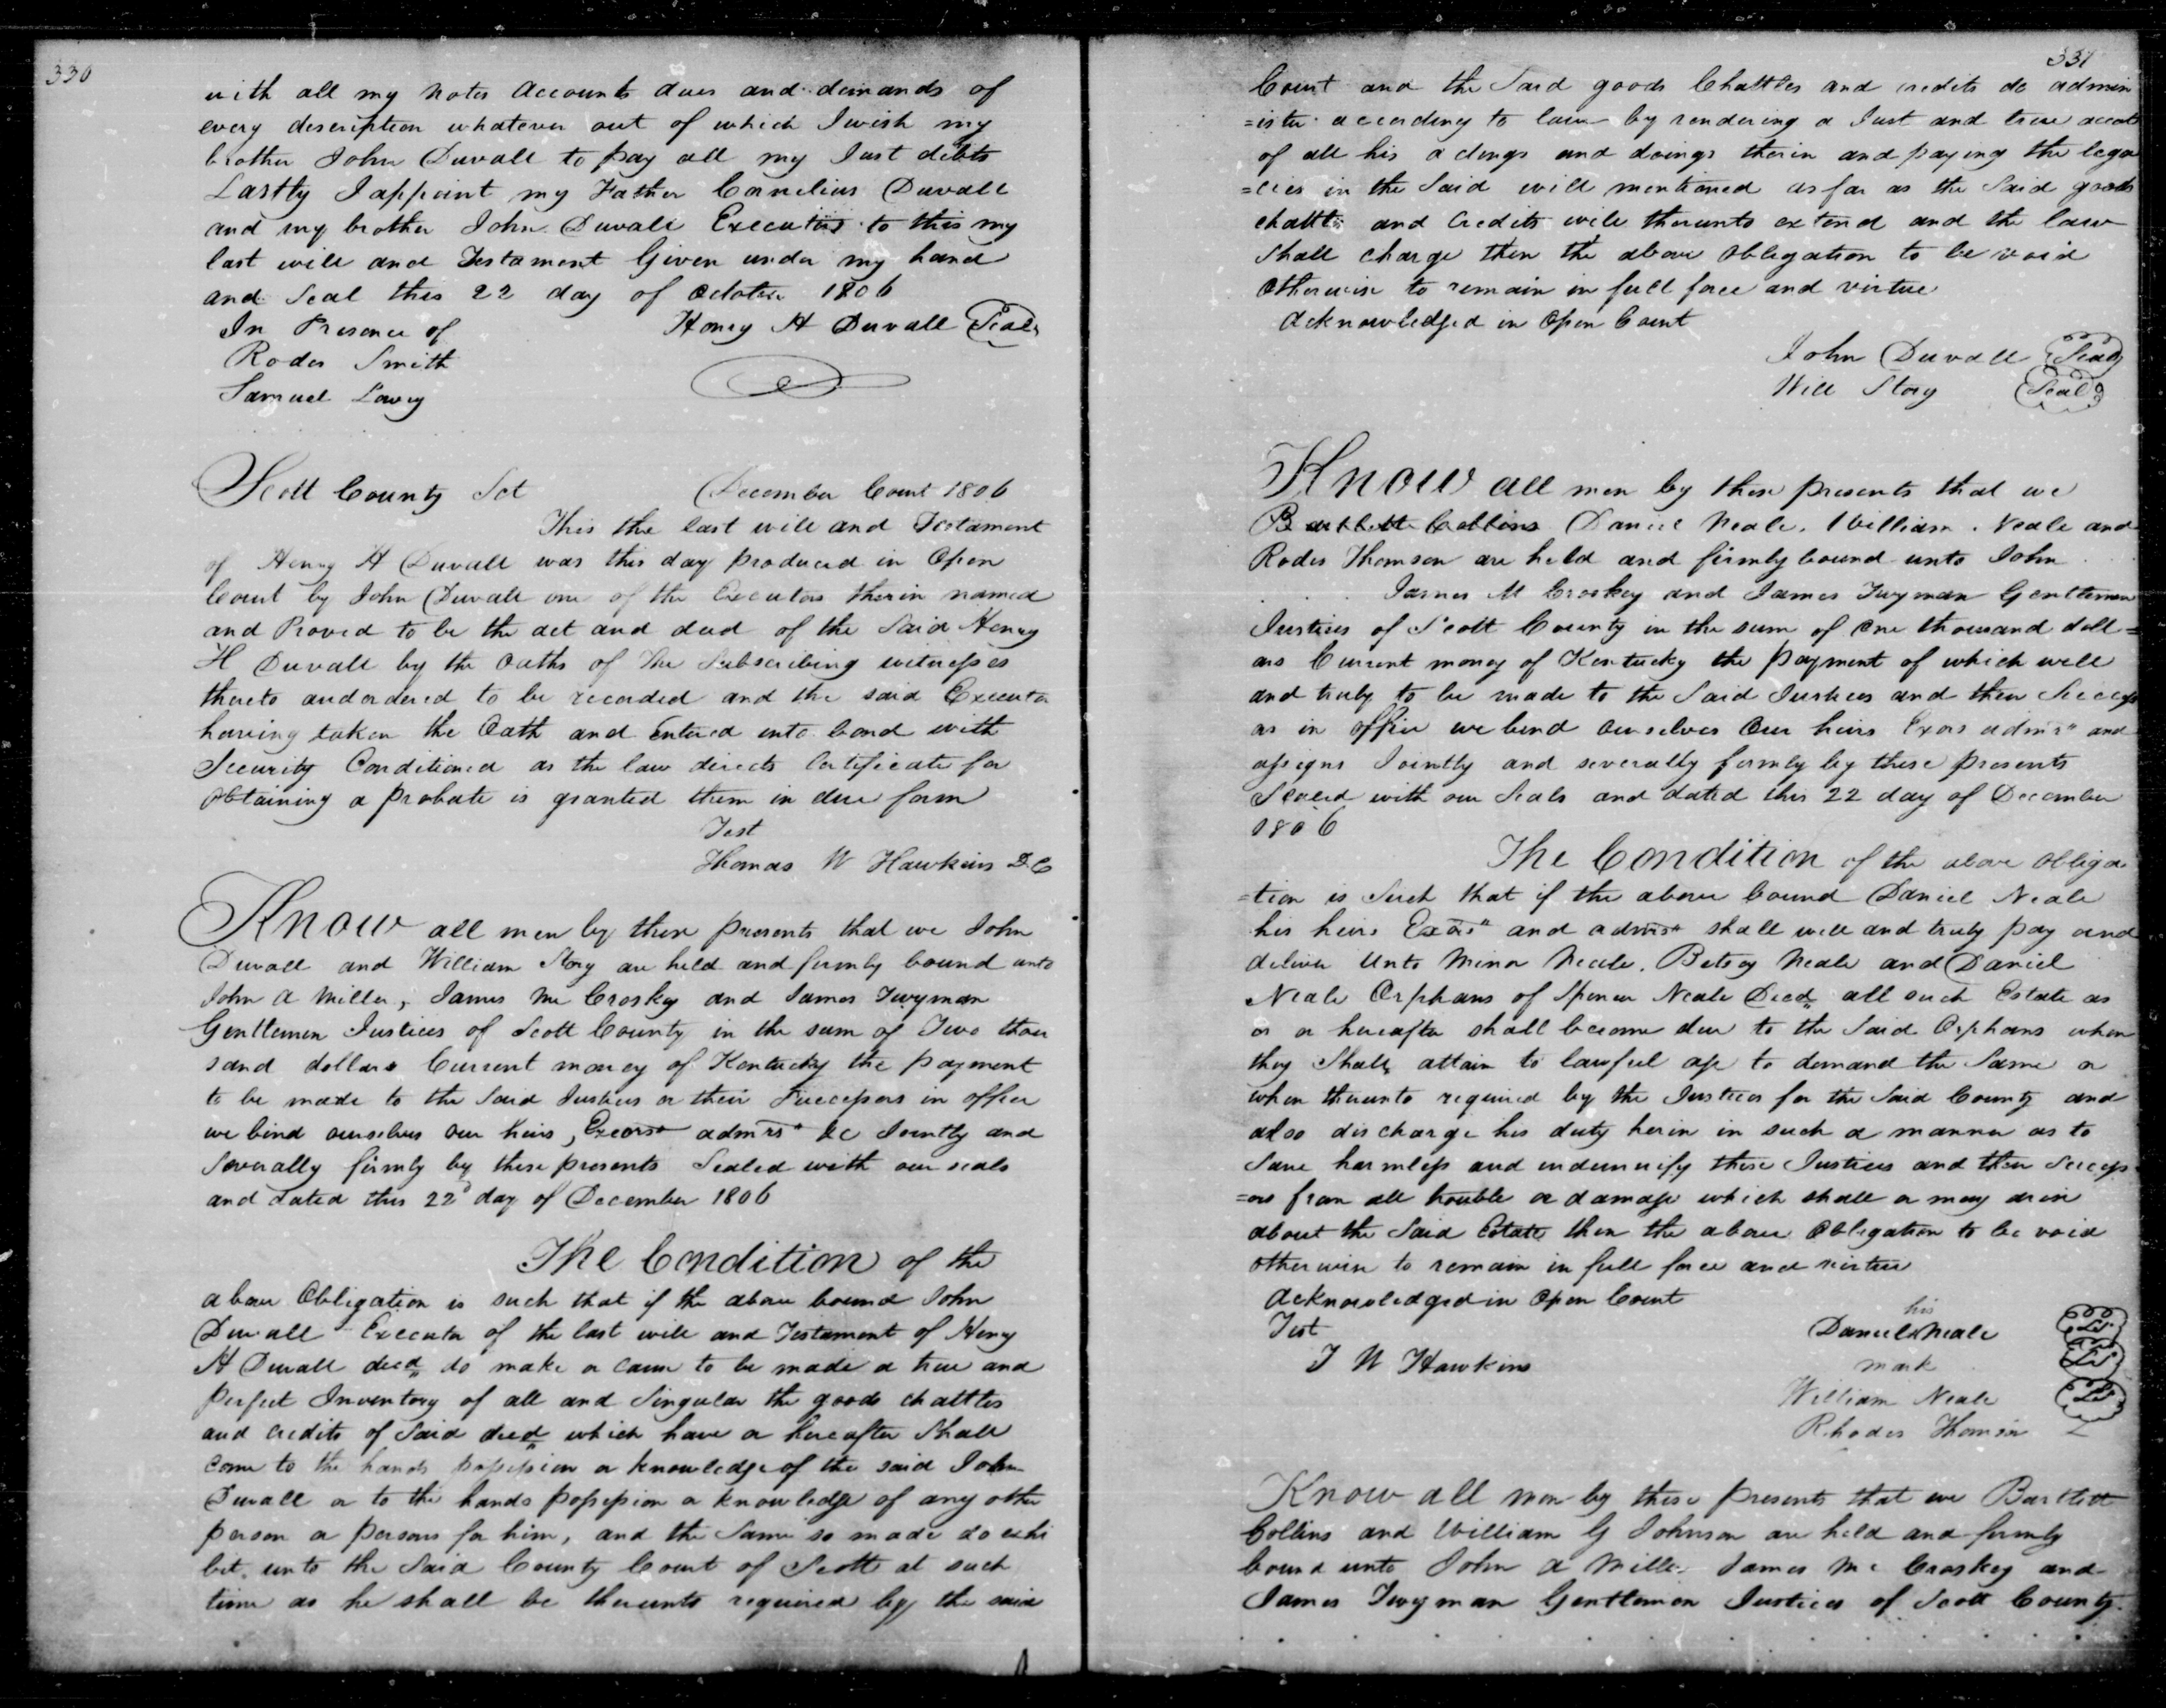 330
with all my notes accounts dues and demands of
every description whatever out of which I wish my
brother John Duvall to pay all my Just debts
Lastly I appoint my Father Cornelius Duvall
and my brother John Duvall Executors to this my
last will and Testament Given under my hand
and Seal this 22 day of october 1806
In Presence of Henry H Duvall Seal
Rodes Smith
Samuel Lowry
Scott County Sct December Court 1806
This the last will and Testament
of Henry H Duvall was this day produced in Open
Court by John Duvall one of the Executors therin named
and Proved to be the act and deed of the Said Henry
H Duvall by the Oaths of the Subscribing witnesses
thereto and ordered to be recorded and the said Executor
having taken the Oath and Entered into bond with
Security Conditioned as the law directs Certificate for
obtaining a probate is granted them in due form
Test
Thomas W Hawkins D.C
Know all men by these presents that we John
Duvall and William Story are held and firmly bound unto
John A Miller, James Mc Croskey and James Twyman
Gentlemen Justices of Scott County in the sum of Two thou
sand dollars Current money of Kentucky the payment
to be made to the Said Justices or their Successors in office
we bind ourselves our heirs, Exors admrs &c Jointly and
Severally firmly by these presents Sealed with our seals
and dated this 22d day of December 1806
The Condition of the
above Obligation is such that if the above bound John
Duvall Executor of the last will and Testament of Henry
H Duvall decd do make or cause to be made a true and
perfect Inventory of all and Singular the goods chattles
and credits of Said decd which have or hereafter Shall
come to the hands possession or knowledge of the said John
Duvall or to the hands possession or knowledge of any other
person or persons for him, and the Same so made do exhi
bit unto the Said County Court of Scott at such
time as he shall be thereunto required by the said
331
Court and the Said goods Chattles and credits do admin
=ister according to law by rendering a Just and true accot
of all his actings and doings therin and paying the lega
=cies in the Said will mentioned as far as the Said goods
chattles and Credits will thereunto extend and the law
Shall charge then the above obligation to be void
Otherwise to remain in full force and virtue
Acknowledged in Open Court
John Duvall Seal
Will Story Seal
Know all men by these presents that we
Bartlett Collins Daniel Neale, William Neale and
Rodes Thomson are held and firmly bound unto John
James M Croskey and James Twyman Gentlemen
Justices of Scott County in the sum of one thousand doll=
ars Current money of Kentucky the payment of which well
and truly to be made to the Said Justices and their Success
as in office we bind ourselves Our heirs Exors admrs and
assigns Jointly and severally firmly by these presents
Sealed with our Seals and dated this 22 day of December
1806
The Condition of the above obliga
=tion is Such that if the above bound Daniel Neale
his heirs Exors and admrs shall well and truly pay and
deliver Unto Minor Neale, Betsey Neale and Daniel
Neale Orphans of Spencer Neale Decd all such Estate as
or a hereafter shall become due to the Said Orphans when
they Shall attain to lawful age to demand the Same or
when thereunto required by the Justices for the Said County and
also discharge his duty herin in such a manner as to
Save harmless and indemnify these Justices and their Success
=ors from all trouble or damage which shall or may arise
about the Said Estate then the above Obligation to be void
otherwise to remain in full force and virtue
Acknowledged in Open Court
Test his
Daniel Neale
T W Hawkins mark
William Neale
Rhodes Thomson
Know all men by these presents that we Bartlett
Collins and William G Johnson are held and firmly
bound unto John A Miller James Mc Croskey and
James Twyman Gentlemen Justices of Scott County